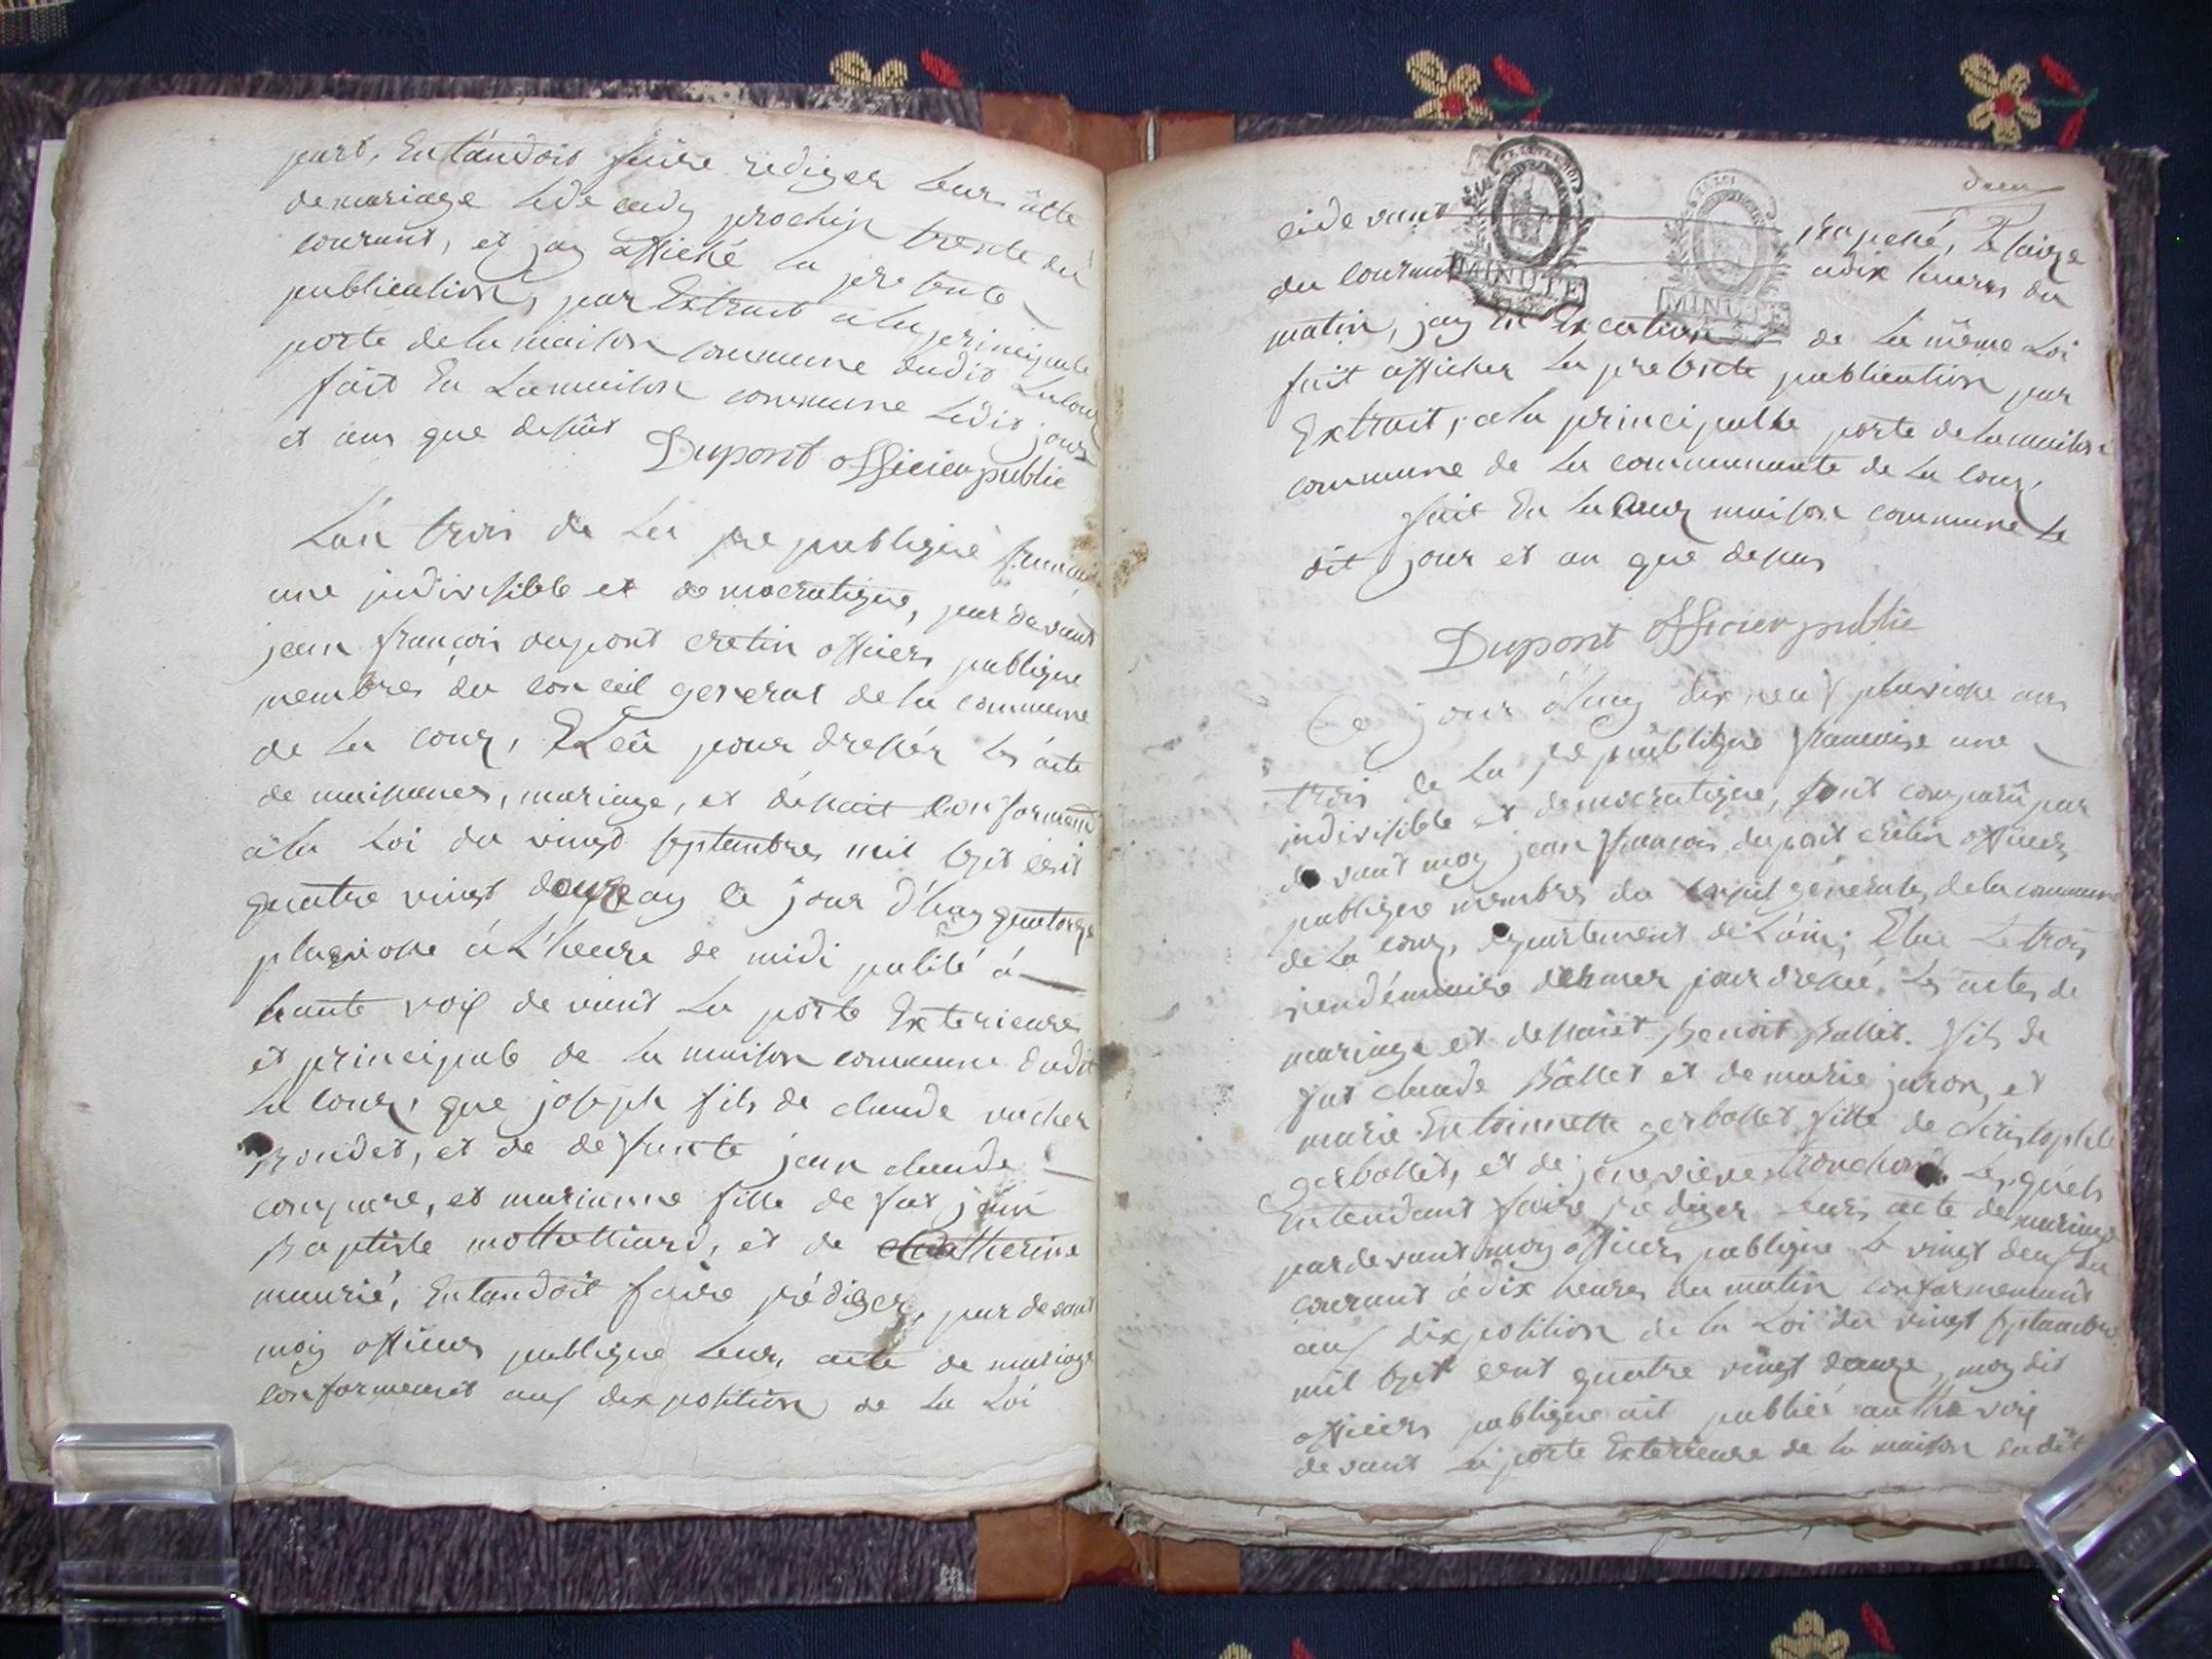 part, Entandois faire rediger leur acte
de mariage le decady prochin trente du
courant, et jay affiché la presente
publication, par Extrait a la principale
porte de la maison commune dudit Lalour
fait En La maison commune ledit jour
et ans que desüt
Dupont officier public
L'an trois de La republique francai
une jndivisible et democratique, par devant
jean françois dupont cretin officiers publique
membres du conceil general de la commune
de la cour, Eleû pour dresser les acte
de naissances, mariage, et déssait conformem
a la Loi du vingt septembres mil sept cent
quatre vingt douze ay ce jour d'huy quatorze
pluviosse à L'heure de midi publié à
haute voix devant La porte Exterieure
et principale de la maison commune dudit
La cour, que joseph fils de claude vucher
Rondet, et de defunte jean claude
conpare, et marianne fille de fut jean
Baptiste mottettiard, et de Catherine
maurié, Entandoit faire rédiger, par devant
moy officiers publique leur acte de mariage
conformement aux dixposition de La Loi
deux
cidevant rapelé, Le saize
du courant adix heures du
matin, jay En Execution de La même Loi
fait afficher La presente publication par
Extrait, a la principalle porte de la maison
commune de la communante de La cour,
fait En La Cour maison commune le
dit jour et an que desus
Dupont officier public
Ce jour d'huy dix neuf pluviose ans
trois de la republique francaise une
jndivisible et democratique, sont comparû par
devant moy jean francois dupont cretin officiers
publique membres du conseil generale, de la commune
de La cour, département de L'ain, Elue Le trois
vendémiaire dernier pour dressé Les actes de
mariage et dessaiet Benoit Ballet. fils de
fut claude Ballet et de marie juron, et
marie Entoinnette gerbollet fille de Christophle
gerbollet, et de jeneviève Les quels
Entendant faire rédiger leurs acte de mariage
pardevant moy officiers publique le vingt deux du
courant à dix heures du matin conformement
aux dixposition de la Loi du vingt septambre
mil sept cent quatre vingt douze, moy dit
officiers publique ait publiér authe voix
devant La porte Exterieure de la maison dudit
MINUTE
MINUTE